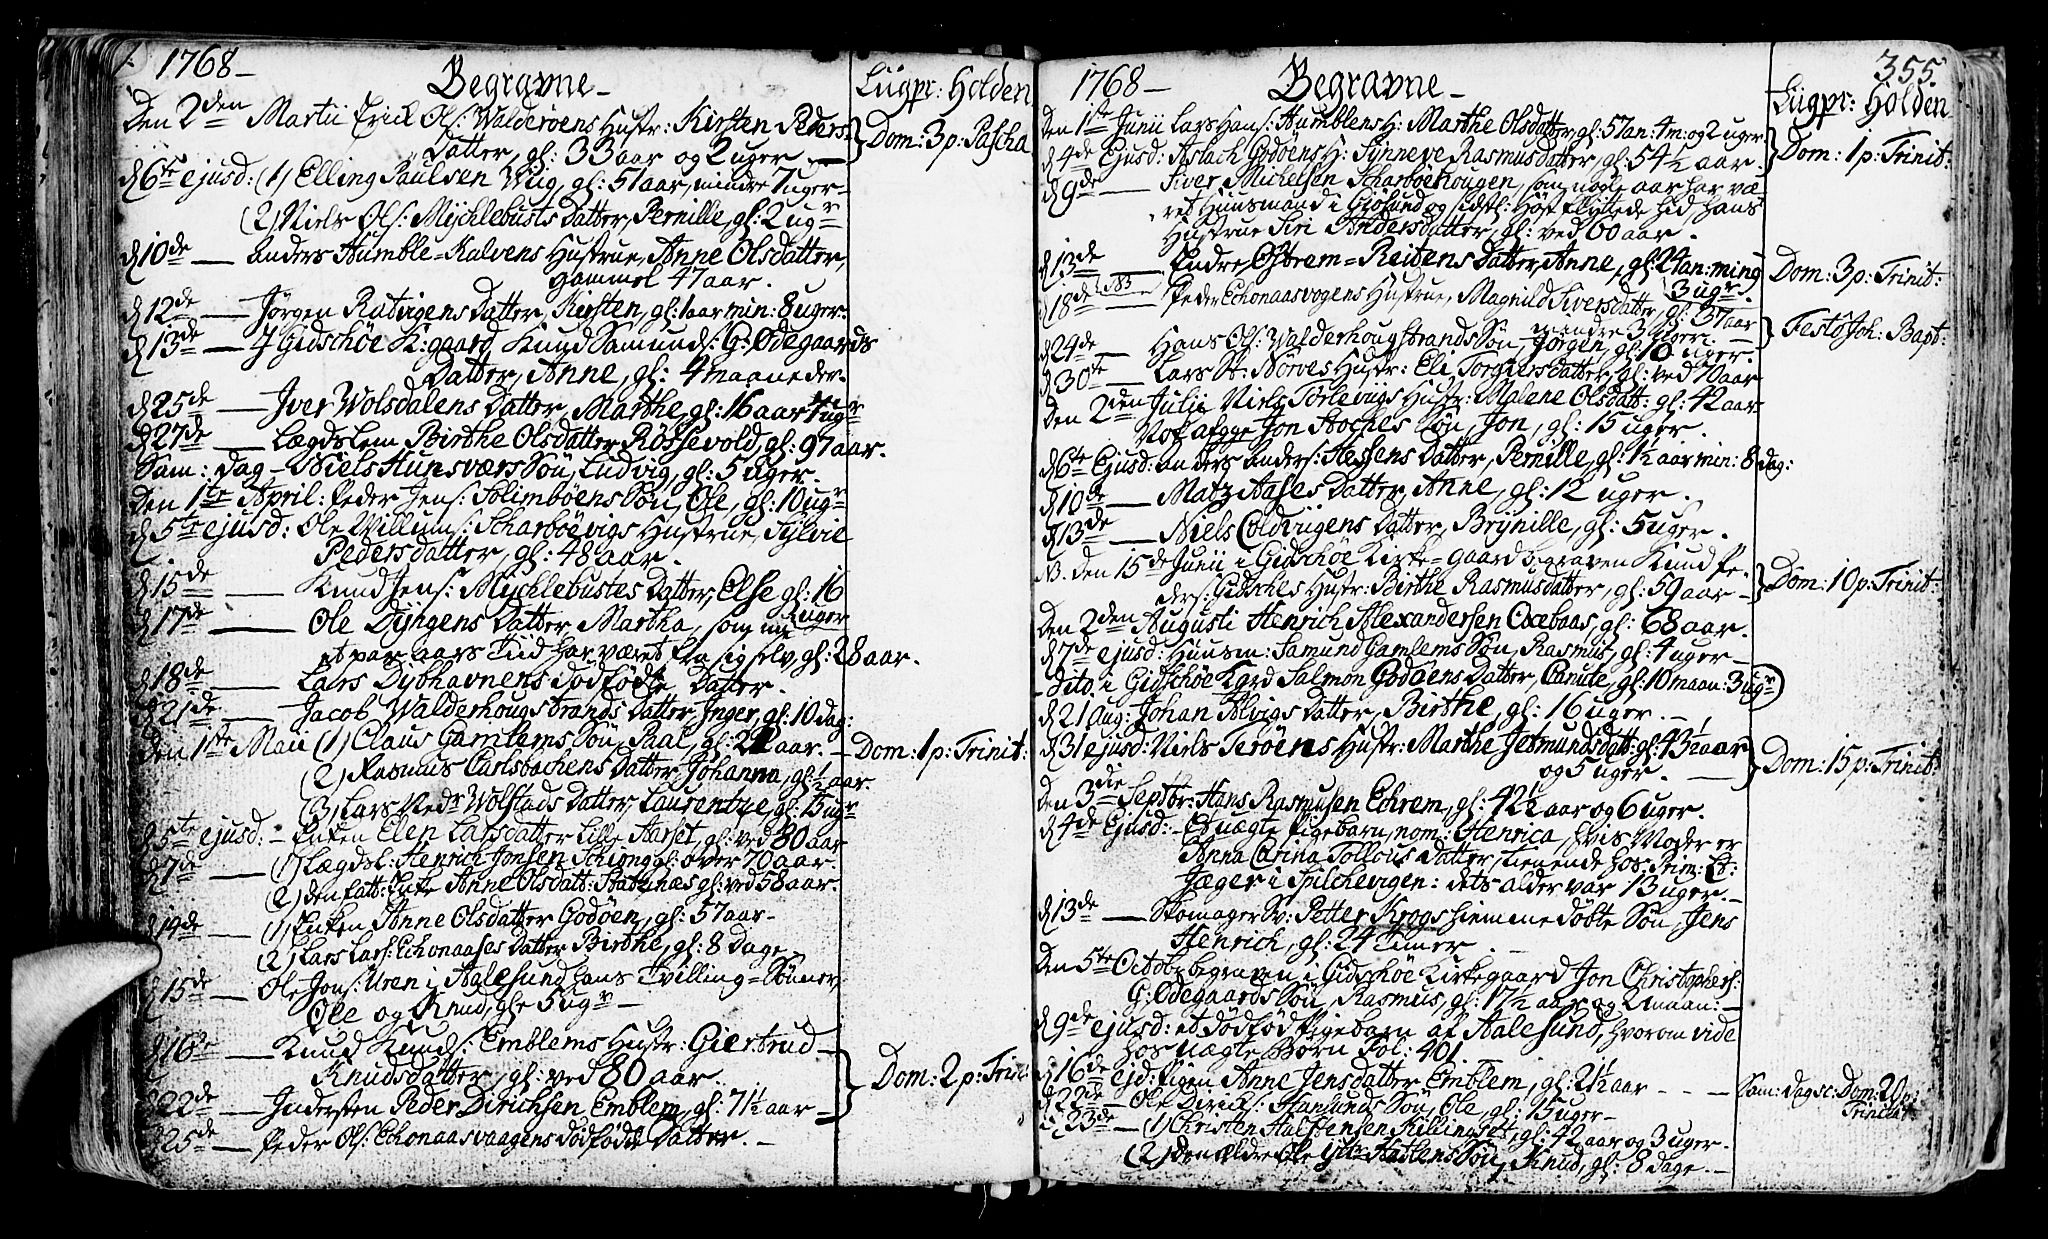 1768 –
Begravne –
Liigpr: Holden
Den 2den Martii Erick Ols: Walderøens Hustr: Kirsten Peders-
Datter, gl: 33 aar og 2 uger – Dom: 3 p: Pascha
d 6te ejusd: (1) Elling Paulsen Wiig, gl: 51 aar, mindre 7 uger –
(2) Niels Ols: Mychlebusts Datter, Pernille, gl: 2 ugr
d 10de — Anders Humble-Kalvens Hustrue, Anne Olsdatter,
Gammel 47 aar.
d 12de — Jørgen Ratvigens Datter, Kirsten, gl: 1 aar min: 8 uger.
d 13de — J Gidschøe K:gaard Knud Samunds: G: Ødegaards
Datter, Anne, gl: 4 maaneder.
d 25de — Iver Wolsdalens Datter, Marthe, gl: 16 aar 7 ugr
d 27de — Lægdslem Birthe Olsdatter Røssevold, gl: 97 aar.
Sam: dag – Niels Hunsværs Søn, Ludvig, gl: 5 uger.
Den 1ste April: Peder Jens: Solimbøens Søn, Ole, gl: 10 ugr
d 5te ejusd: Ole Willums: Scharbøevigs Hustrue, Sylvie
Pedersdatter, gl: 48 aar.
d 15de — Knud Jens: Mychlebustes Datter, Else gl: 16
uger
d 17de — Ole Dyngens Datter Martha, som nu
et par aars Tiid har været fra sig selv, gl: 28 aar.
d 18de — Lars Dybhavnens dødfødte Datter.
d 21de — Jacob Walderhougstrands Datter, Inger, gl: 10 dag:
Den 1ste Maii (1) Claus Gamlems Søn, Paal, gl: 2 aar. – Dom: 1 p: Trinit:
(2) Rasmus Carlsbachens Datter, Johanna, gl: ½ aar.
(3) Lars Nedr Wolstads Datter, Laurentze, gl: 15 ugr
d 5te ejusd: – Enken Elen Larsdatter Lille Aarset, gl: ved 80 aar
d 7de — (1) Lægdsl: Henrich Jonsen Schiong gl: over 70 aar.
(2) den fatt: Enke Anne Olsdatt: Statznæs gl: ved 58 aar.
d 19de — (1) Enken Anne Olsdatter Godøen, gl: 57 aar –
(2) Lars Lars: Echonaases Datter Birthe, gl: 8 Dage
d 15de — Ole Jons: Uren i Aalesund hans Tvilling-Sønner,
Ole og Knud, gle 5 ugr –
d 16de — Knud Knuds: Emblems Hustr: Giertrud
Knudsdatter, gl: ved 80 aar. Dom: 2 p: Trin:
d 22de — Indersten Peder Dirichsen Emblem, gl: 71½ aar –
d 25de — Peder Ols: Echonaasvaagens dødfødde Datter. –
1768 –
Begravne –
355.
Liigpr: Holden
Den 1ste Junii Lars Hans: Humblens H: Marthe Olsdatter, gl: 57 an: 4 m: og 2 uger
d 4de Ejusd: Aslach Godøens H: Synneve Rasmusdatter, gl: 54½ aar. Dom: 1 p: Trinit:
d 9de — Siver Michelsen Scharbøehougen, som nogle aar har væ
ret Huusmand i Giøsund og sidstl: Høst flyttede hid, hans
Hustrue Siri Andersdatter, gl: ved 60 aar.
d 13de — Endre Østrem-Reitens Datter, Anne, gl: 24 an: ming
3 ugr. Dom: 3 p: Trinit:
d 18de NB — Peder Echonaasvogens Hustrue, Magnild Siversdatter, gl: 37 aar
mindre 3 uger. Festo Joh: Bapt:
d 24de — Hans Ols: Walderhougstrands Søn Jørgen, gl: 10 uger.
d 30te — Lars St: Nørves Hustr: Eli Torgiersdatter, gl: ved 70 aar
Den 2den Julii Niels Torlevigs Hustr: Malene Olsdatt: gl: 42 aar
Nof. afgge Jon Stoches Søn, Jon, gl: 15 uger.
d 6te Ejusd: Anders Anders: Hessens Datter, Pernille, gl: 1½ aar min: 8 dag:
d 10de — Matz Aases Datter, Anne, gl: 12 uger.
d 13de — Niels Coldviigens Datter, Brynille, gl: 5 uger.
NB. Den 15de Junii i Gidschøe Kirke-gaard begraven Knud Pe-
ders: Gidschis Hustr: Birthe Rasmusdatter, gl: 59 aar – Dom: 10 p: Trinit:
Den 2den Augusti Henrich Alexandersen Oxebaas, gl: 68 aar.
d 7de ejusd: Huusm: Samund Gamlems Søn, Rasmus, gl: 4 uger –
Dito. i Gidschøe Kgrd Salmon Godøens Datter, Canute, gl: 10 maan: 3 ugr
d 21 Aug: Johan Alvigs Datter, Birthe, gl: 16 uger. –
d 31 ejusd: Niels Terøens Hustr: Marthe Jetmundsdatt: gl: 43½ aar
og 5 uger. — Dom: 15 p: Trinit:
Den 3die Septbr: Hans Rasmusen Echrem, gl: 42½ aar og 6 uger.
d 4de Ejusd: – Et uægte Pigebarn, nom: Henrica, hvis Moder er
Anna Carina Tollous datter, tienende hos Prim: Lt:
Jæger i Spilchevigen: dets alder var 13 uger. –
d 13de — Skomager Sv: Petter Krogs hiemmedøbte Søn, Jens
Henrich, gl: 24 Timer –
Den 5te Octobr begraven i Gidschøe Kirkegaard Jon Christophers:
G: Ødegaards Søn, Rasmus, gl: 17½ aar og 2 maan: –
d 9de ejusd: et dødfød Pigebarn af Aalesund, hvorom vide
hos uægte Børn Fol: 401.
d 16de ejd: Pigen Anne Jensdatter Emblem, gl: 21½ aar – – – Sam: dag sc: Dom: 20 p:
Trinitat
d 22de – Ole Dirichs: Hansunds Søn, Ole, gl: 15 uger –
d 23de – (1) Christen Halstensen Killingset, gl: 42 aar og 3 uger. –
(2) den ældre Ole Ytr-Hatlens Søn, Knud, gl: 8 dage. –